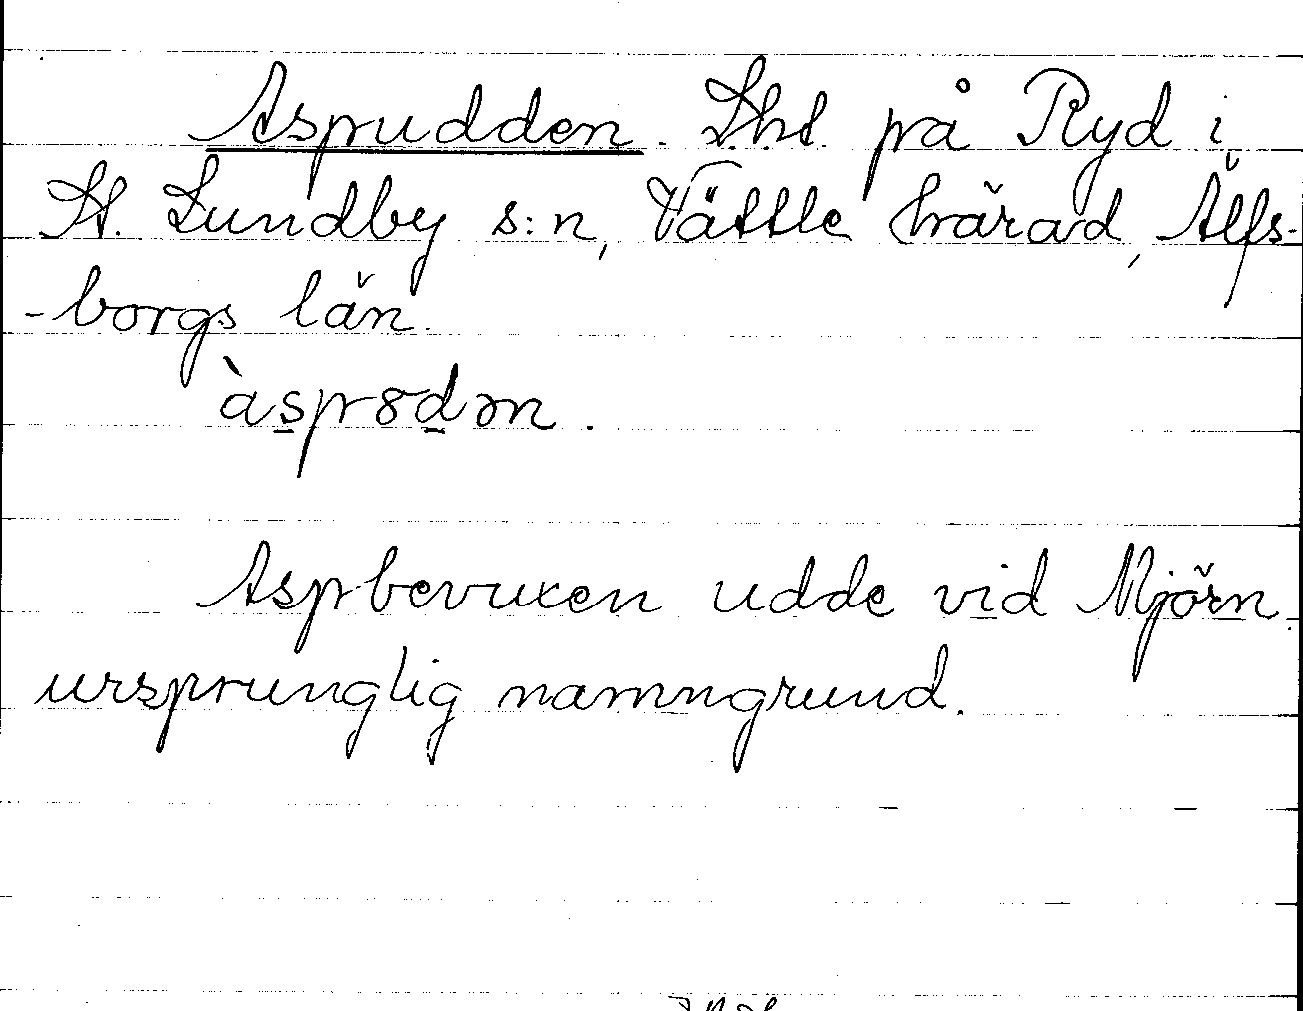 Aspudden. Lht. på Ryd i
St. Lundby s:n, Vättle härad, Älfs-
-borgs län.
àspr8dən.
Aspbevuxen udde vid Mjörn
ursprunglig namngrund.